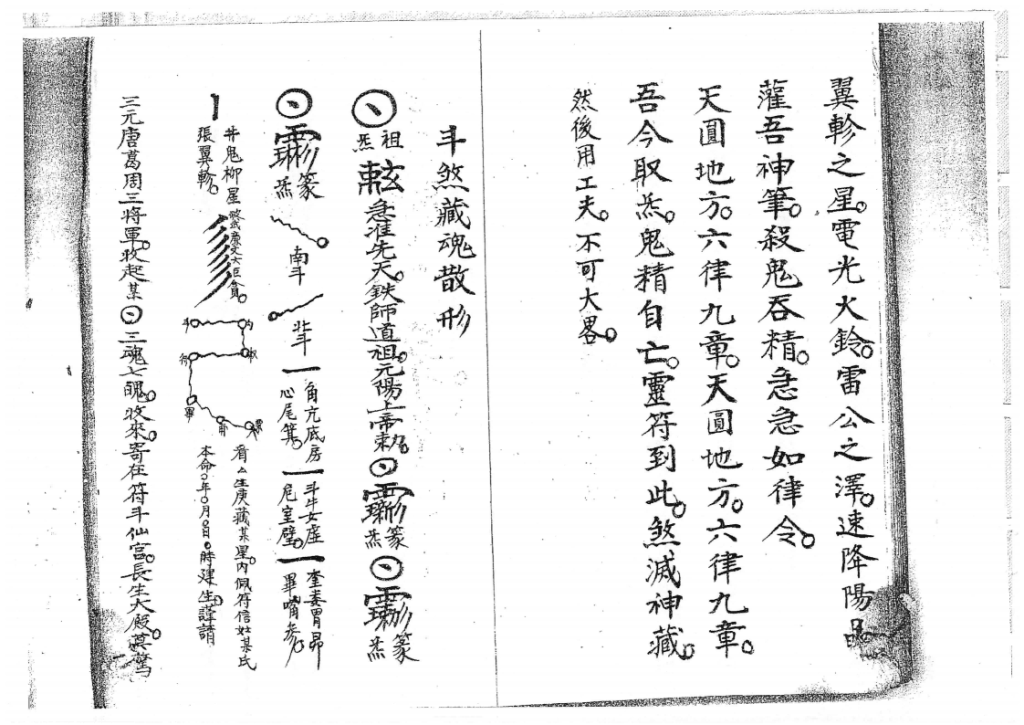 翼軫之星。電光火鈴。雷公之澤。速降陽
灌吾神筆。殺鬼吞精。急急如律令。
天圓地方。六律九章。天圓地方。六律九章。
吾今取炁。鬼精自亡。靈符到此。煞滅神藏。
然後用工夫。不可大畧。
斗煞藏魂散形
祖炁
急准先天。鉄師道祖。元陽上帝勅。
篆炁
篆炁
篆炁
南斗
北斗
角亢底房
心尾箕。
斗牛女虛
危室璧。
奎婁胃昴
畢嘴參。
井鬼柳星
張翼軫。
看厶生庚藏某星内佩符信女某氏
本命○年○月○日○時建生。謹請
三元唐葛周三將軍。收起某
三魂七魄。收來。寄在符斗仙宮。長生大殿。莫驚